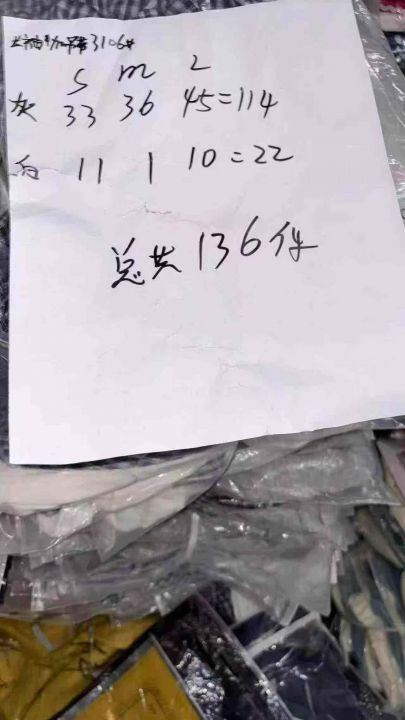 3106#
S m L
灰 33 36 45=114
白 11 1 10=22
总共136件